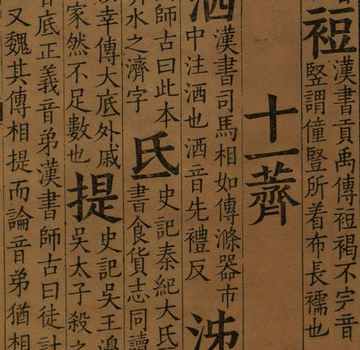 裋
漢書貢禹傳裋褐不字音
竪謂僮竪所着布長襦也
十一薺
洒
漢書司馬相如傳滌器市
中注洒也洒音先禮反
泲
師古曰此本
水之濟字
氐
史記秦紀大氐
書食貨志同讀
幸傳大底外戚
家然不足數也
提
史記吳王濞
吳太子殺之
底正義音弟漢書師古曰徒計
又魏其傳相提而論音弟猶相